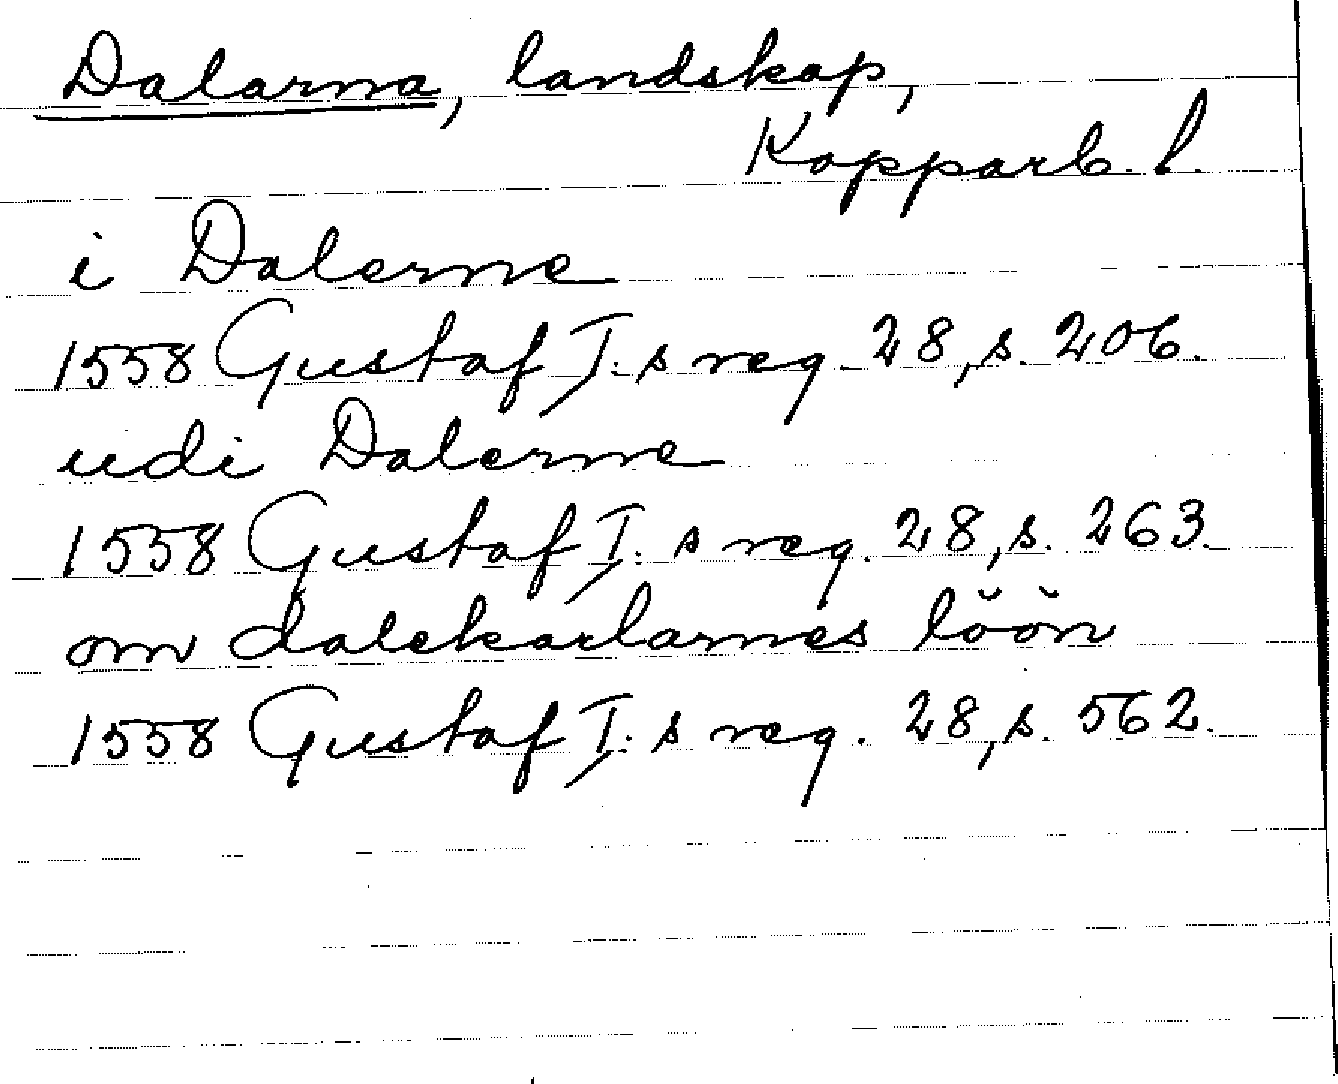 Dalarna, landskap,
Kopparb. l.
i Dalerne
1558 Gustaf I:s reg. 28, s. 206.
udi Dalerne
1558 Gustaf I:s reg. 28, s. 263.
om dalekarlarnes löön
1558 Gustaf I:s reg. 28, s. 562.